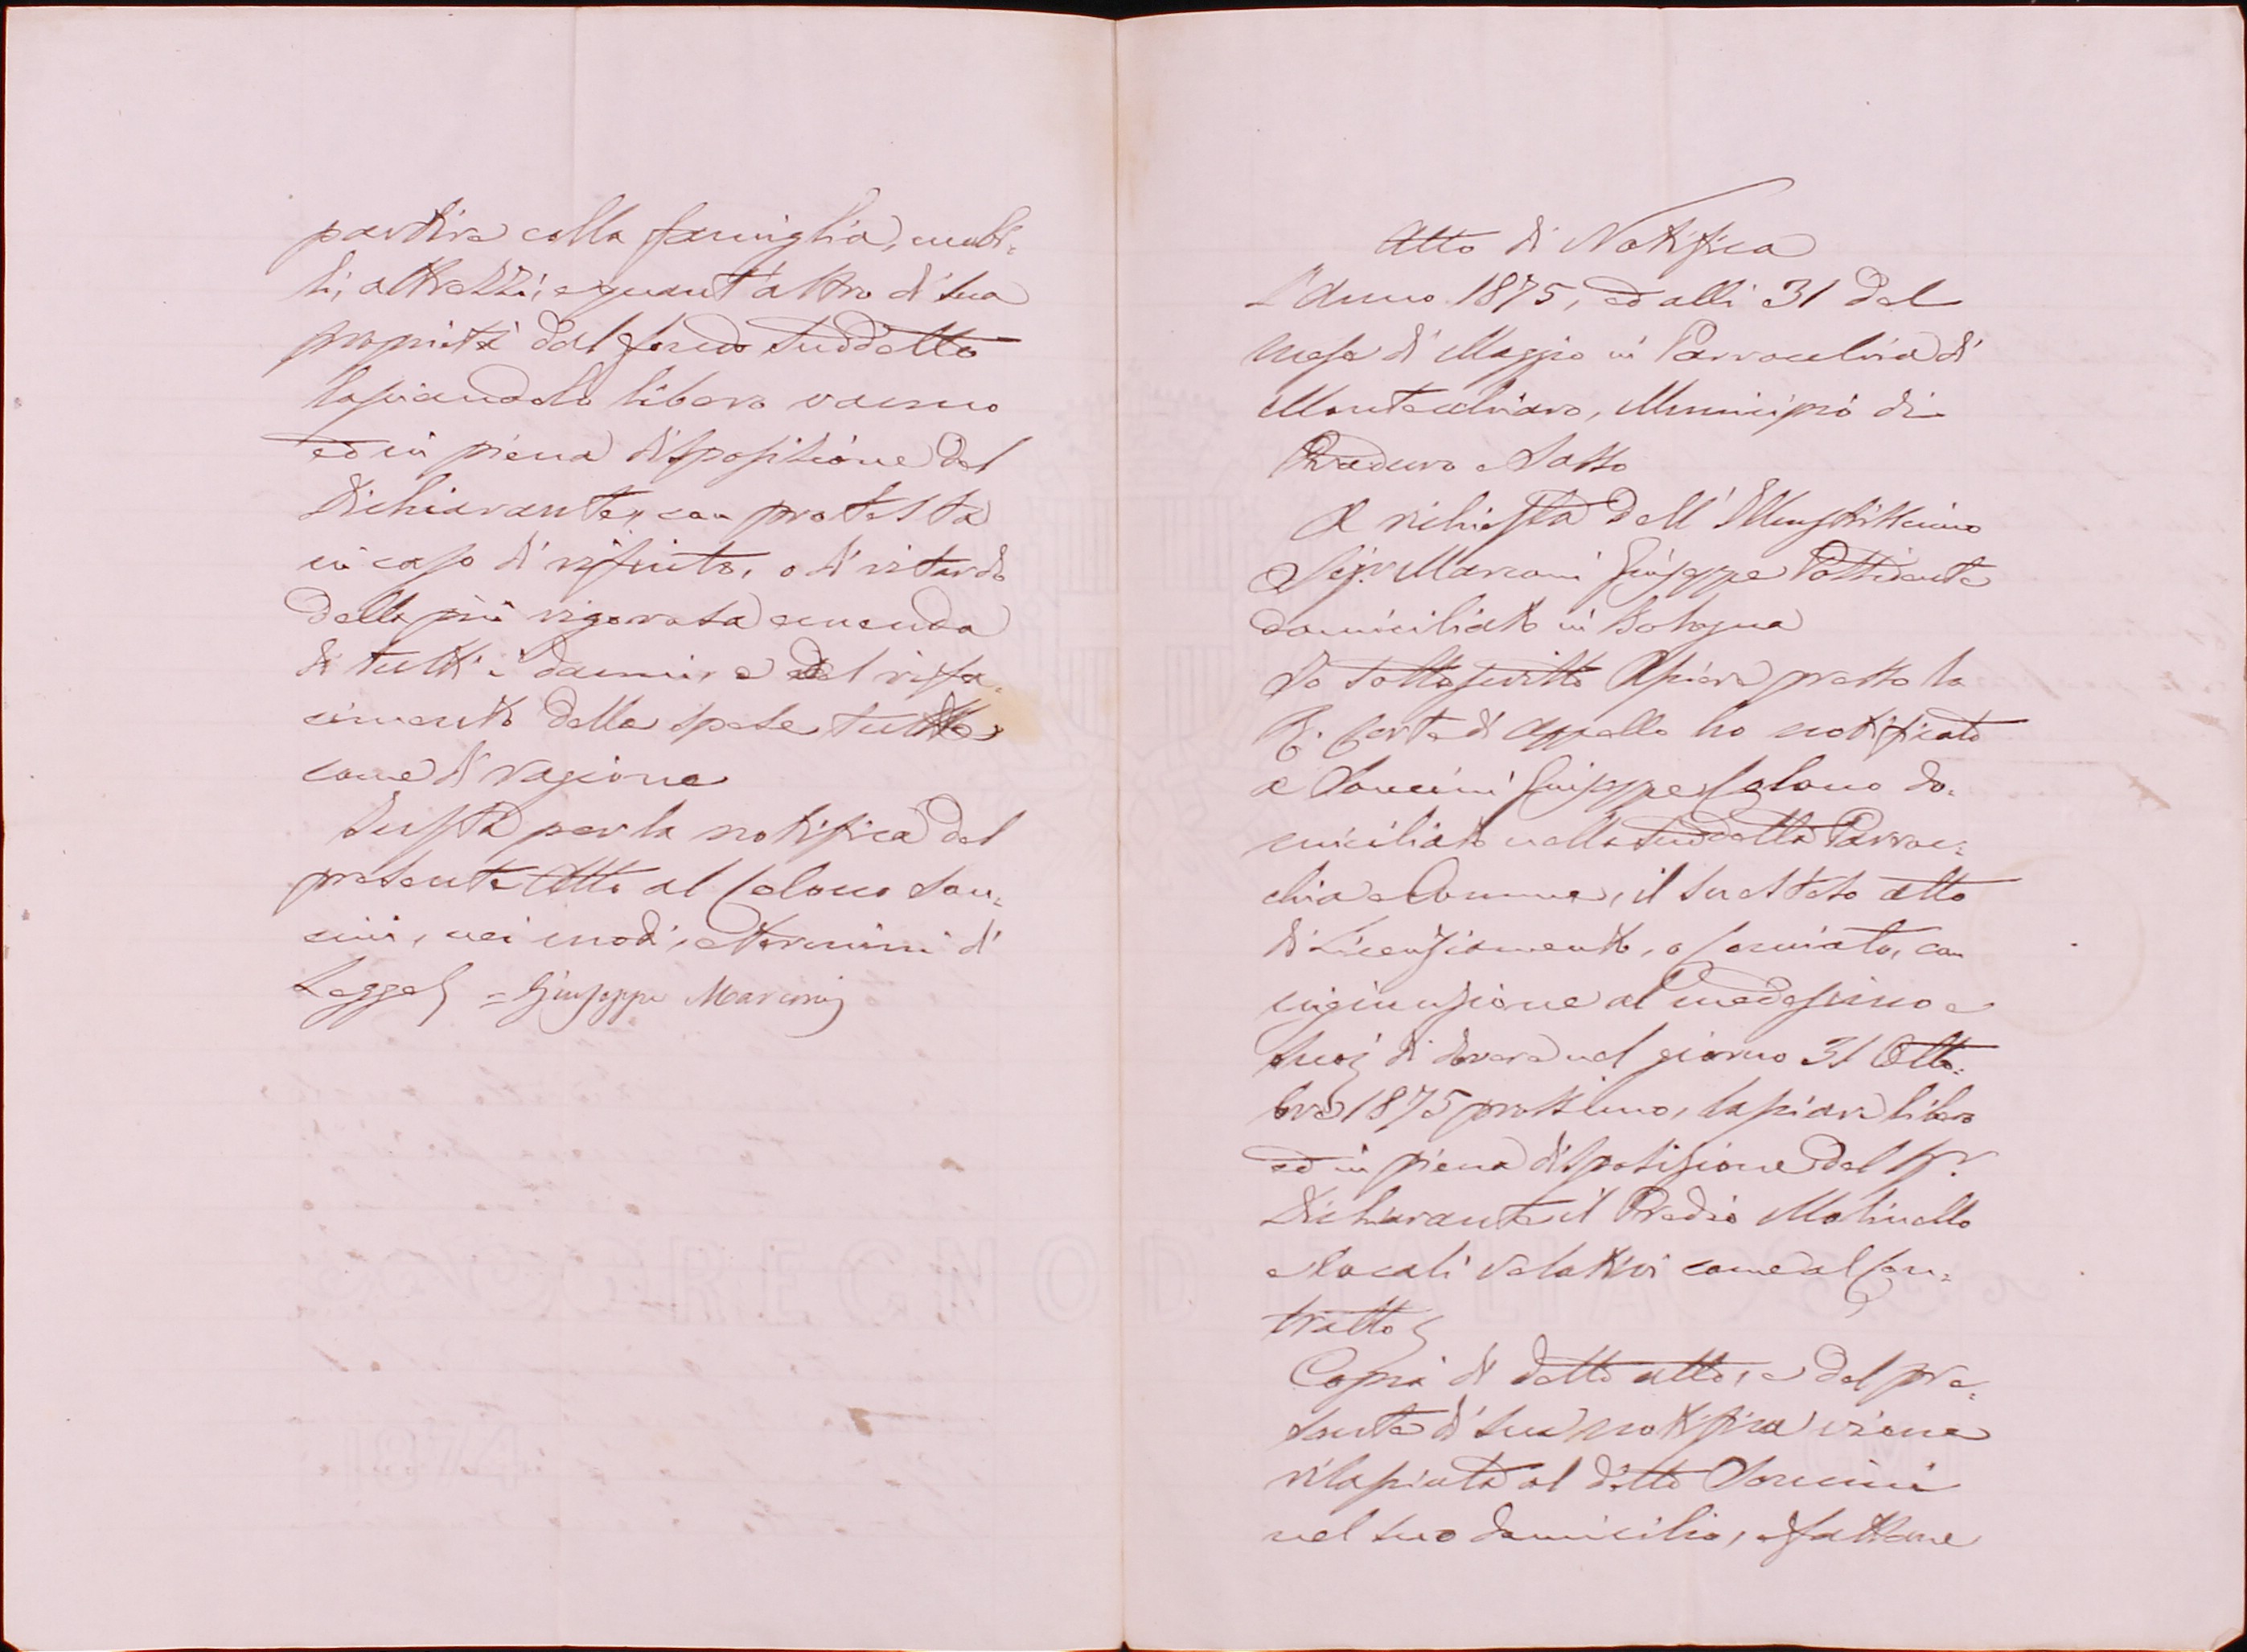 partire colla famiglia, mobi=
li, attrezzi, e quant'altro di sua
proprietà dal fondo suddetto
lasciandolo libero vacuo
ed in piena disposizione del
Dichiarante, con protesta
in caso di rifiuto, o di ritardo
della più rigorosa emenda
di tutti i danni, e del rifa=
cimento delle spese tutte
come di ragione
Insta per la notifica del
presente Atto al Colono San=
cini, nei modi, e termini di
Legge = Giuseppe Marconi
Atto di Notifica
L'anno 1875, ed alli 31 del
mese di Maggio in Parrocchia di
Montechiaro, Municipio di
Praduro e Sasso
A richiesta dell'Illustrissimo
Sigr. Marconi Giuseppe Possidente
domiciliato in Bologna
Io sottoscritto Usciere presso la
R. Corte di Appello ho notificato
a Sancini Giuseppe Colono do=
miciliato nella suddetta Parroc=
chia e Comune, il suesteso atto
di Licenziamento, o Comiato, con
ingiunzione al medesimo e
suoi di dovere nel giorno 31 Otto=
bre 1875 prossimo, lasciare libero
ed in piena disposizione del Sr.
Dichiarante il Predio Molinello
e locali relativi come al Con=
tratto
Copia di detto atto, e del pre=
sente di sua notifica viene
rilasciata al detto Sancini
nel suo domicilio, e fattone
REGNO D'ITALIA
1874